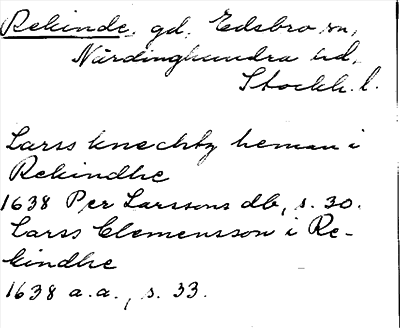 Rekinde, gd, Edsbro sn,
Närdinghundra hd,
Stockh. l.
Larss knechtz heman i
Rekindhe
1638 Per Larssons db, s. 30.
Larss Clemensson i Re-
kindhe
1638 a.a., s. 33.